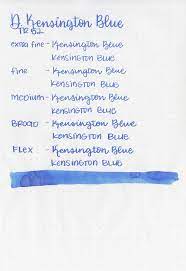 D. Kensington Blue
TR 52
extra fine - Kensington Blue
KENSINGTON BLUE
fine - Kensington Blue
KENSINGTON BLUE
MEDIUM - Kensington Blue
KENSINGTON BLUE
BROAD - Kensington Blue
KENSINGTON BLUE
FLEX - Kensington Blue
KENSINGTON BLUE